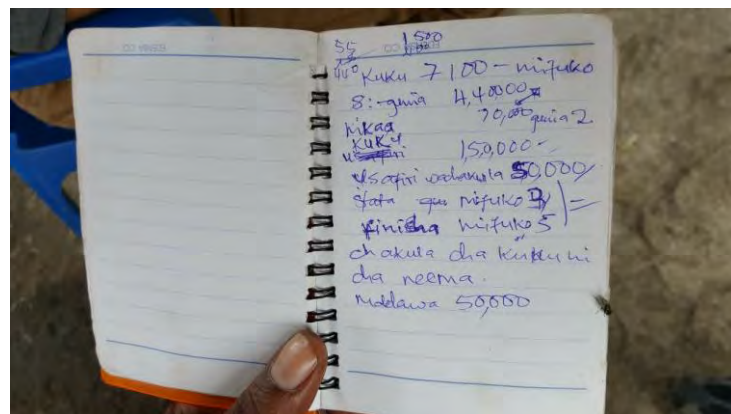 55 1500
Kuku 7100 - mifuko
8:-gunia 4,40000
70,000 gunia 2
mkaa
kuku 150,000 -
usafiri wa chakula 50,000/
stata gro mifuko
finisha mifuko 5
chakula cha kuku ni
cha neema.
Madawa 50,000